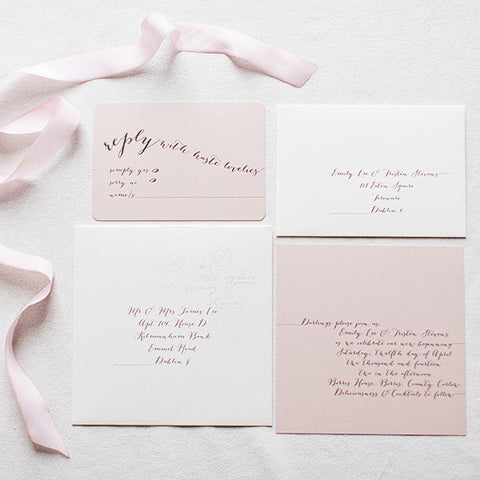 reply with haste lovelies
simply, yes
sorry, no
name/s
Emily Lee & Tristin Stevens
101 Eden Square
Terenure
Dublin 6
Mr & Mrs James Lee
Apt 104, House D
Kilmainham Bank
Emmet Road
Dublin 8
Darlings please join us,
Emily Lee & Tristin Stevens
as we celebrate our new beginning
Saturday, Twelfth day of April
Two thousand and fourteen
Two in the afternoon
Borris House, Borris, County Carlow
Deliciousness & Cocktails to follow